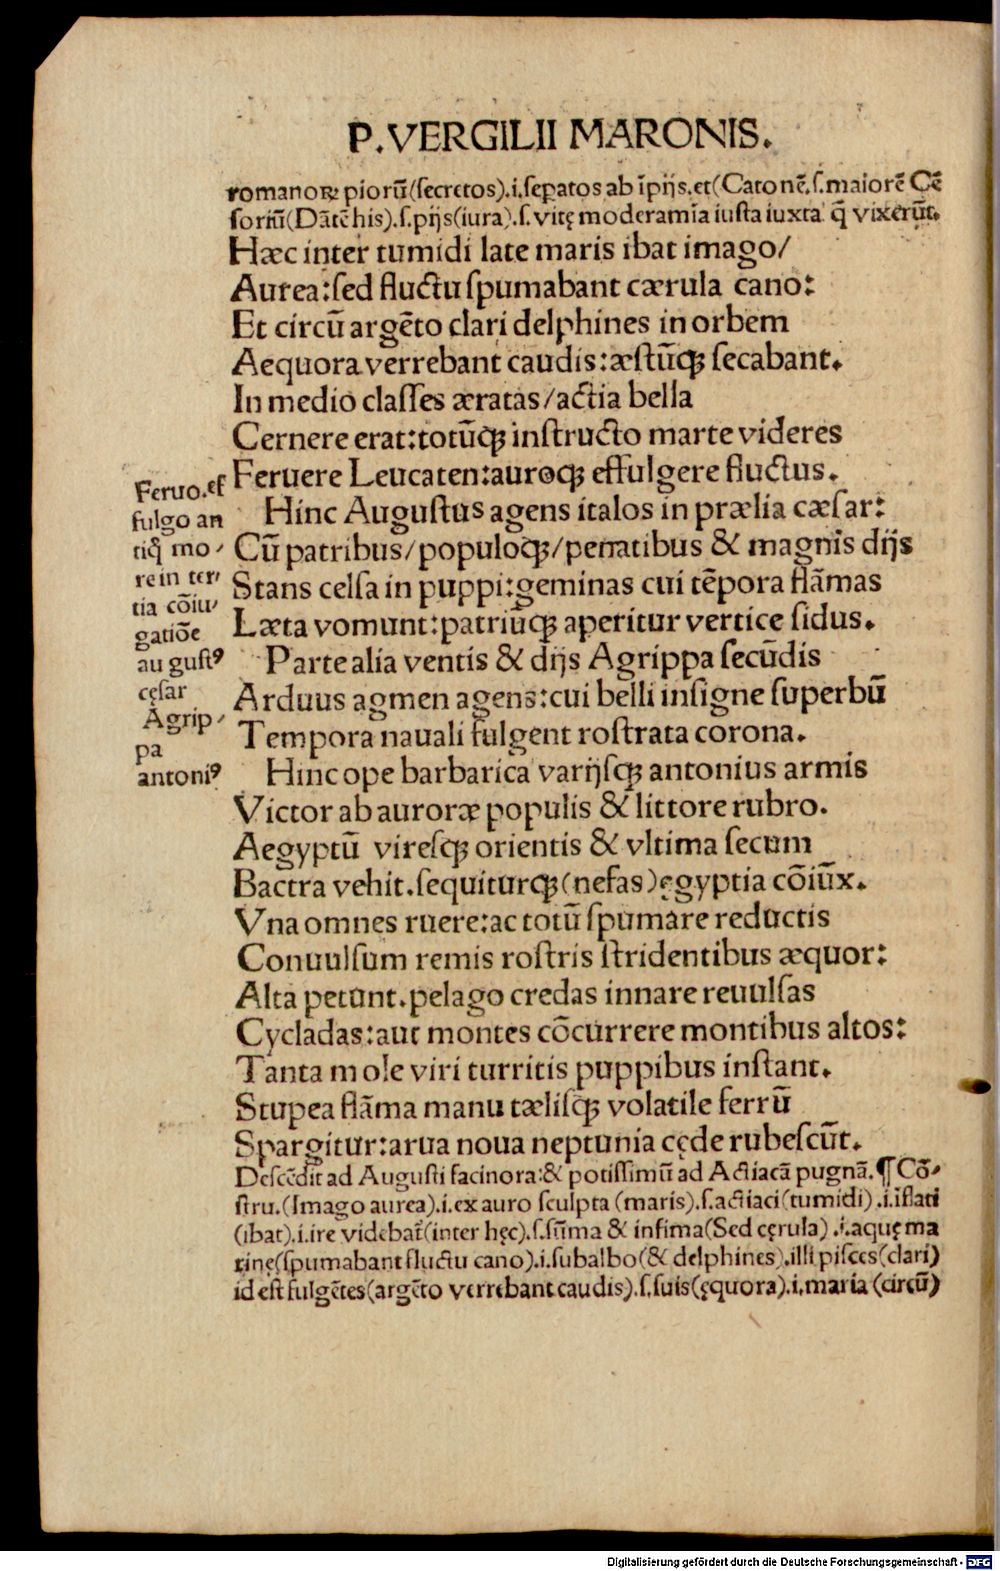 P. VERGILII MARONIS.
romanoꝝ piorū(secretos).i.seꝑatos ab īpijs.et(Catonē.s.maiorē Cē
soriū(Dātē his).s.pijs(iura).s.vitę moderamīa iusta iuxta q̄ vixerūt.
Hæc inter tumidi late maris ibat imago/
Aurea:sed fluctu spumabant cærula cano:
Et circū argēto clari delphines in orbem
Aequora verrebant caudis:æstūqꝫ secabant.
In medio classes æratas/actia bella
Cernere erat:totūqꝫ instructo marte videres
Feruere Leucaten:auroqꝫ effulgere fluctus.
Hinc Augustus agens italos in prælia cæsar:
Cū patribus/populoqꝫ/penatibus & magnis dijs
Stans celsa in puppi:geminas cui tēpora flāmas
Læta vomunt:patriūqꝫ aperitur vertice sidus.
Parte alia ventis & dijs Agrippa secūdis
Arduus agmen agens:cui belli insigne superbū
Tempora nauali fulgent rostrata corona.
Hinc ope barbarica varijsqꝫ antonius armis
Victor ab auroræ populis & littore rubro.
Aegyptū viresqꝫ orientis & vltima secum
Bactra vehit.sequiturqꝫ(nefas)ęgyptia cōiūx.
Vna omnes ruere:ac totū spumare reductis
Conuulsum remis rostris stridentibus æquor:
Alta petunt.pelago credas innare reuulsas
Cycladas:aut montes cōcurrere montibus altos:
Tanta mole viri turritis puppibus instant.
Stupea flāma manu tælisqꝫ volatile ferrū
Spargitur:arua noua neptunia cęde rubescūt.
Feruo.ef
fulgo an
tiq̄ mo-
re in ter-
tia cōiu-
gatiōe
august⁹
cęsar
Agrip-
pa
antoni⁹
Descēdit ad Augusti facinora:& potissimū ad Actiacā pugnā.¶Cō-
stru.(Imago aurea).i.ex auro sculpta (maris).s.actiaci(tumidi).i.īflati
(ibat).i.ire videbat̄(inter hęc).s.sūma & infima(Sed cęrula).i.aquę ma
rinę(spumabant fluctu cano).i.subalbo(& delphines).illi pisces(clari)
id est fulgētes(argēto verrebant caudis).s.suis(ęquora).i.maria (circū)
Digitalisierung gefördert durch die Deutsche Forschungsgemeinschaft - DFG